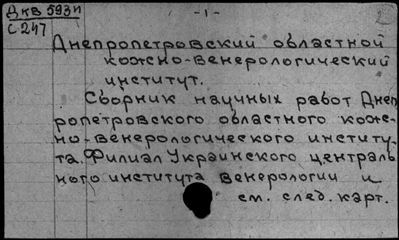 Дкв 593н
С 247
- 1 -
Днепропетровский областной
кожно-венерологический
институт.
Сборник научных работ Днеп
ропетровского областного кож-
но-венерологического институ-
та. Филиал Украинского централь
ного института венерологии и
см. след. карт.